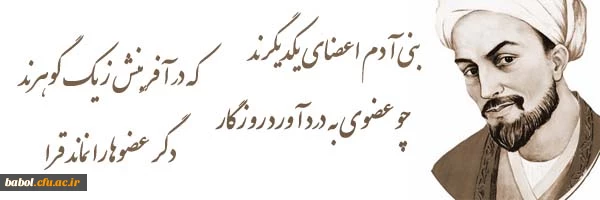 بنی آدم اعضای یکدیگرند
که در آفرینش ز یک گوهرند
چو عضوی به درد آورد روزگار
دگر عضوها را نماند قرا
babol.cfu.ac.ir